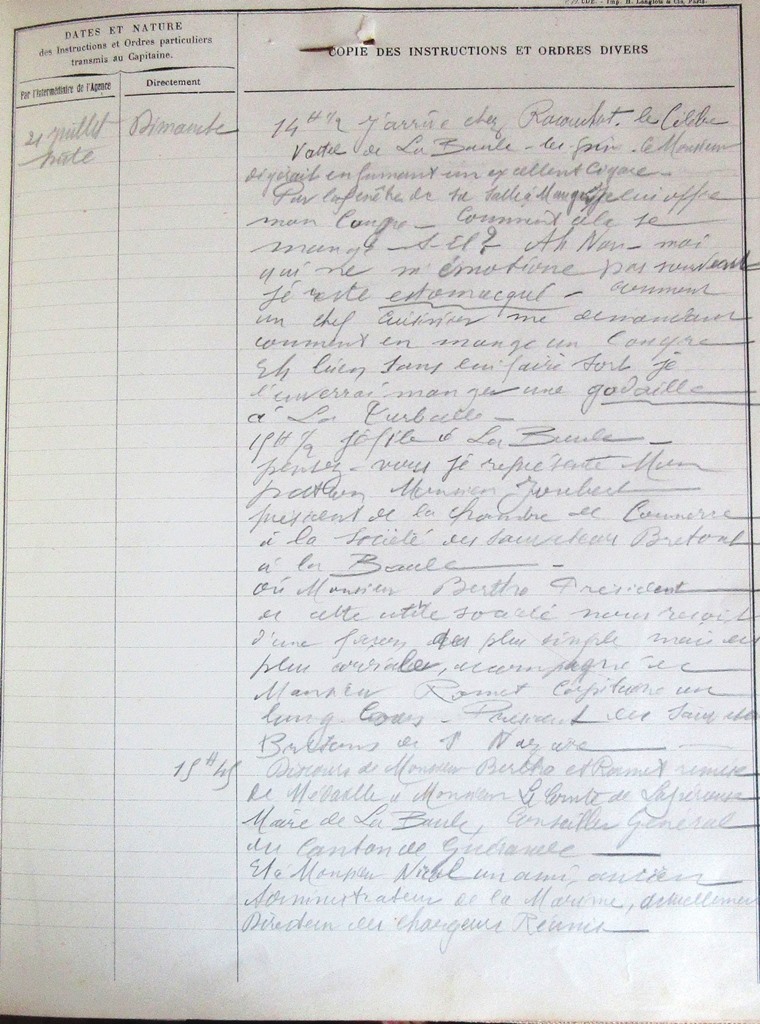 DATES ET NATURE
des Instructions et Ordres particuliers
transmis au Capitaine.
Par l'Intermédiaire de l'Agence
Directement
COPIE DES INSTRUCTIONS ET ORDRES DIVERS
21 juillet Dimanche
14 H 1/2 j'arrive chez le Célèbre
de La Baule - les pin - le Monsieur
digérait en fumant un excellent Cigare -
Par la fenêtre de sa Salle à Manger je lui offre
mon Congre - Comment cela se
mange - t-il ? Ah Non - moi
qui ne m'émotione pas souvent
jé reste estomacqué - comment
un chef cuisinier me demandant
comment on mange un Congre
Eh bien sans lui faire tort je
l'enverrai manger une godaille
à La Turballe -
15 H 1/2 jé file à La Baule -
pensez - vous jé représente Mon
patron Monsieur Joubert
président de la Chambre de Commerce
à la Société des Sauveteurs Bretons
à la Baule -
où Monsieur Bertho Président
de cette utile société nous reçoit
d'une façon des plus simple mais des
plus cordiales, accompagné de
Monsieur Romet Capitaine au
long Cours - Président des Sauveteurs
Bretons de St Nazaire
15 H 45 Discours de Monsieur Bertho et Romet remise
de Médaille à Monsieur Le Comte de Lapérouse
Maire de La Baule, Conseiller Général
du Canton de Guérande
Et à Monsieur Nicol un ami, ancien
Administrateur de la Marine, actuellement
Directeur des Chargeurs Réunis